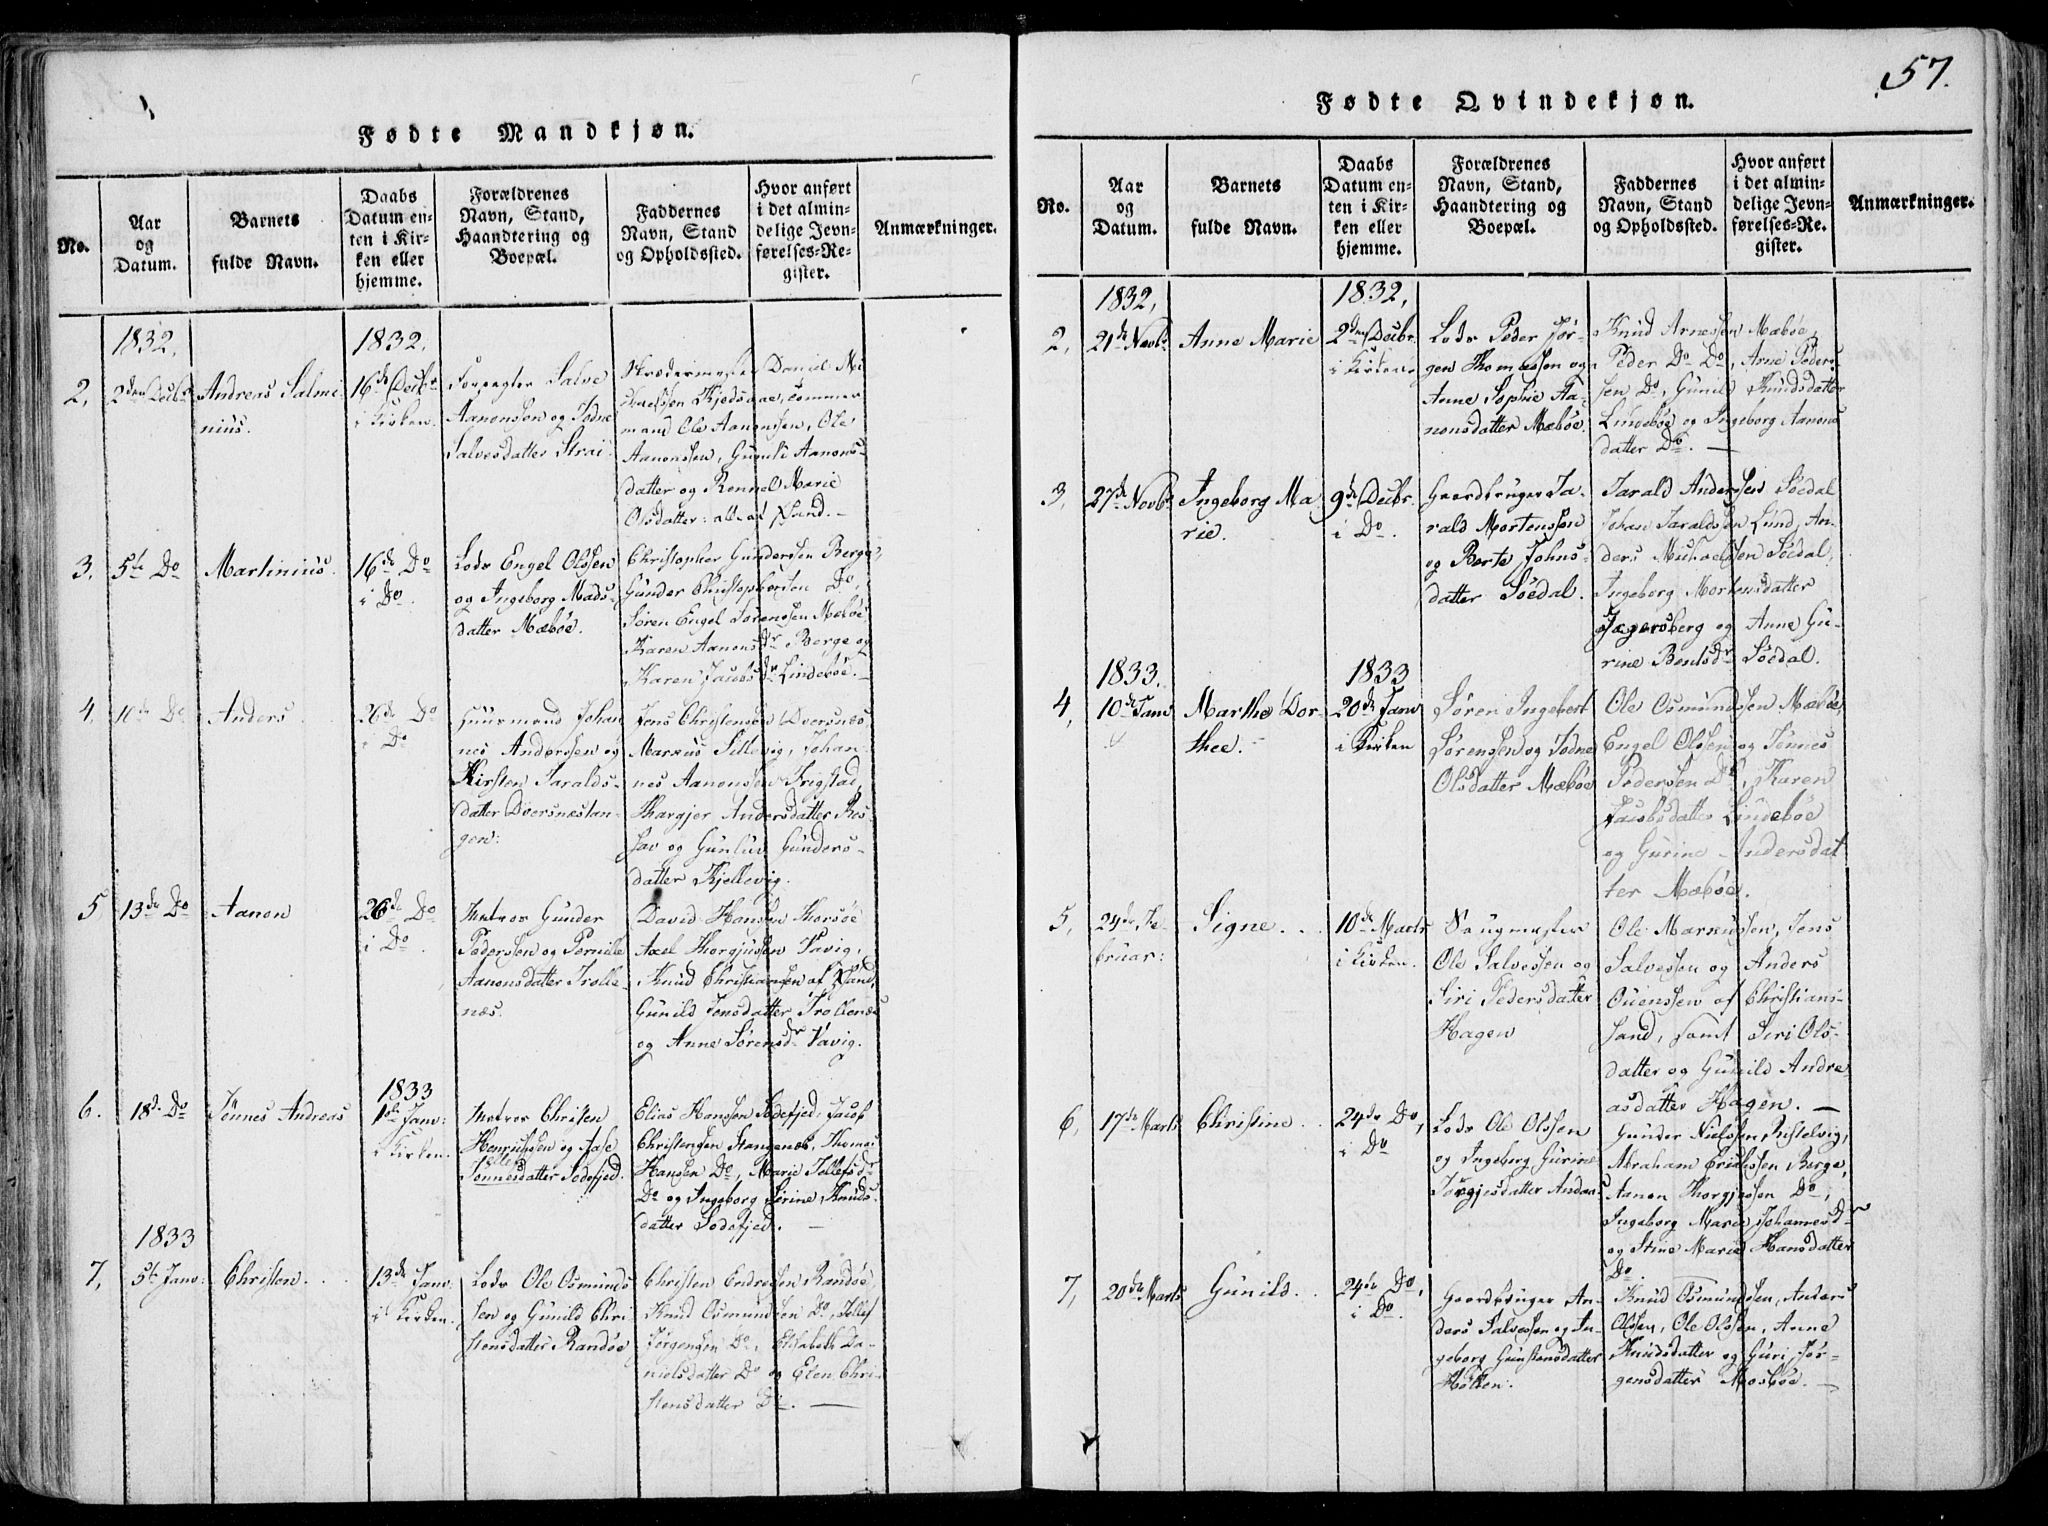 57.
Fødte Mandkjøn.
No.
Aar
og
Datum.
Barnets
fulde Navn.
Daabs
Datum en-
ten i Kir-
ken eller
hjemme.
Forældrenes
Navn, Stand,
Haandtering og
Boepæl.
Faddernes
Navn, Stand
og Opholdssted.
Hvor anført
i det almin-
delige Jevn-
førelses-Re-
gister.
Anmærkninger.
1832,
2,
2den Decbr
Andreas Salmi-
nius.
1832,
16de Decbr
i Kirken.
Forpagter Salve
Aanonssen og Todne
Salvesdatter Strai
Skrædermester Daniel Mi-
chaelssen Kjedsaae, Tømmer
mand Ole Aanonssen, Ole
Aanonssen, Gunuli Aanons-
datter og Rønnel Marie
Olsdatter: alle af Xsand.
3,
5te Do
Martinius.
16de Do
i Do.
Lods Engel Olssen
og Ingeborg Mads-
datter Mæbøe.
Christopher Gunderssen Berge,
Gunder Christopherssen Do,
Søren Engel Sørenssen Mæbøe
Karen Aanonsdr Berge og
Karen Jacobsdr Lindebøe.
4,
10de Do
Anders
26de Do
i Do
Huusmand Johan
nes Anderssen og
Kirsten Taralds-
datter Dversnestan-
gen:
Jens Christenssen Dversnæs
Marcus Sillevig, Johan-
nes Aanonssen Frigstad,
Thargjer Andersdatter Ros-
sav og Gunluv Gunders-
datter Kjellevig.
5
13de Do
Aanon
26de Do
i Do.
Matros Gunder
Pederssen og Pernille
Aanonsdatter Trolle-
næs.
David Hanssen Thorsøe
Axel Thorgjussen Vaavig,
Knud Christianssen af Xsand,
Gunild Jensdatter Trollenæs
og Anne Sørensdr Vaavig.
6.
18de Do
Tønnes Andreas
1833
1ste Janv:
i Kirken.
Matros Christen
Henrichssen og Aase
Tønnesdatter Sodefjed.
Elias Hanssen Sodefjed, Jacob
Christenssen Stangenes, Thomas
Hansen Do, Marie Tollefsdr
Do og Ingeborg Sørine Knuds-
datter Sodefjed.
1833
7,
5te Janv:
Christen.
13de Janv:
i Kirken.
Lods Ole Osmunds-
sen og Gunild Chri-
stensdatter Randøe
Christen Endressen Randøe,
Knud Osmundssen Do, Tollef
Jørgensen Do, Elisabeth Da-
nielsdatter Do og Elen Chri-
stensdatter Do.
Fødte Qvindekjøn.
No.
Aar
og
Datum.
Barnets
fulde Navn.
Daabs
Datum en-
ten i Kir-
ken eller
hjemme.
Forældrenes
Navn, Stand,
Haandtering og
Boepæl.
Faddernes
Navn, Stand
og Opholdssted.
Hvor anført
i det almin-
delige Jevn-
førelses-Re-
gister.
Anmærkninger.
1832,
2,
21de Novbr
Anne Marie
1832,
2den Decbr
i Kirken
Lods Peder Jør-
gen Thomassen og
Anne Sophie Aa-
nonsdatter Mæbøe.
Knud Arnessen Mæbøe,
Peder Do Do, Arne Peders-
sen Do, Gunild Knudsdatter
Lindebøe og Ingeborg Aanons
datter Do.
3,
27de Novbr
Ingeborg Ma-
rie.
9de Decbr.
i Do.
Gaardbruger Ta-
rald Mortenssen
og Berte Johns-
datter Søedal.
Tarald Anderssen Søedal
Johan Taraldssen Lund, An-
ders Michaelssen Søedal,
Ingeborg Mortensdatter
Jegersberg og Anne Gu-
rine Bentsdr Søedal.
1833.
4,
10de Janv
Marthe Dor-
thee.
1833
20de Janv
i Kirken
Søren Ingebert
Sørenssen og Todne
Olsdatter Mæbøe
Ole Osmundssen Mæbøe,
Engel Olssen og Tønnes
Pederssen Do, Karen
Jacobsdatter Lindebøe
og Gurine Andersdat
ter Mæbøe.
5,
24de Fe-
bruar:
Signe.
10de Marts
i Kirken.
Saugmester
Ole Salvessen og
Siri Pedersdatter
Hagen
Ole Marcussen, Jens
Salvessen og Anders
Ouenssen af Christian-
sand, samt Siri Ols-
datter og Gunild Andre-
asdatter Hagen.
6,
17de Marts
Christine
24de Do,
i Do
Lods Ole Olssen
og Ingeborg Gurine
Torgjusdatter Andaas
Gunder Nielssen Kistelvig,
Abraham Erichssen Berge,
Aanon Thorgjussen Do,
Ingeborg Marie Johannesdr
og Stine Marie Hansdatter
Do.
7,
20de Marts
Gunild.
24de Do,
i Do.
Gaardbruger An-
ders Salvessen og In-
geborg Gunstensdatter
Holten.
Knud Osmundssen, Anders
Olssen, Ole Olssen, Anne
Knudsdatter og Guri Jør-
gensdatter Mosbøe.